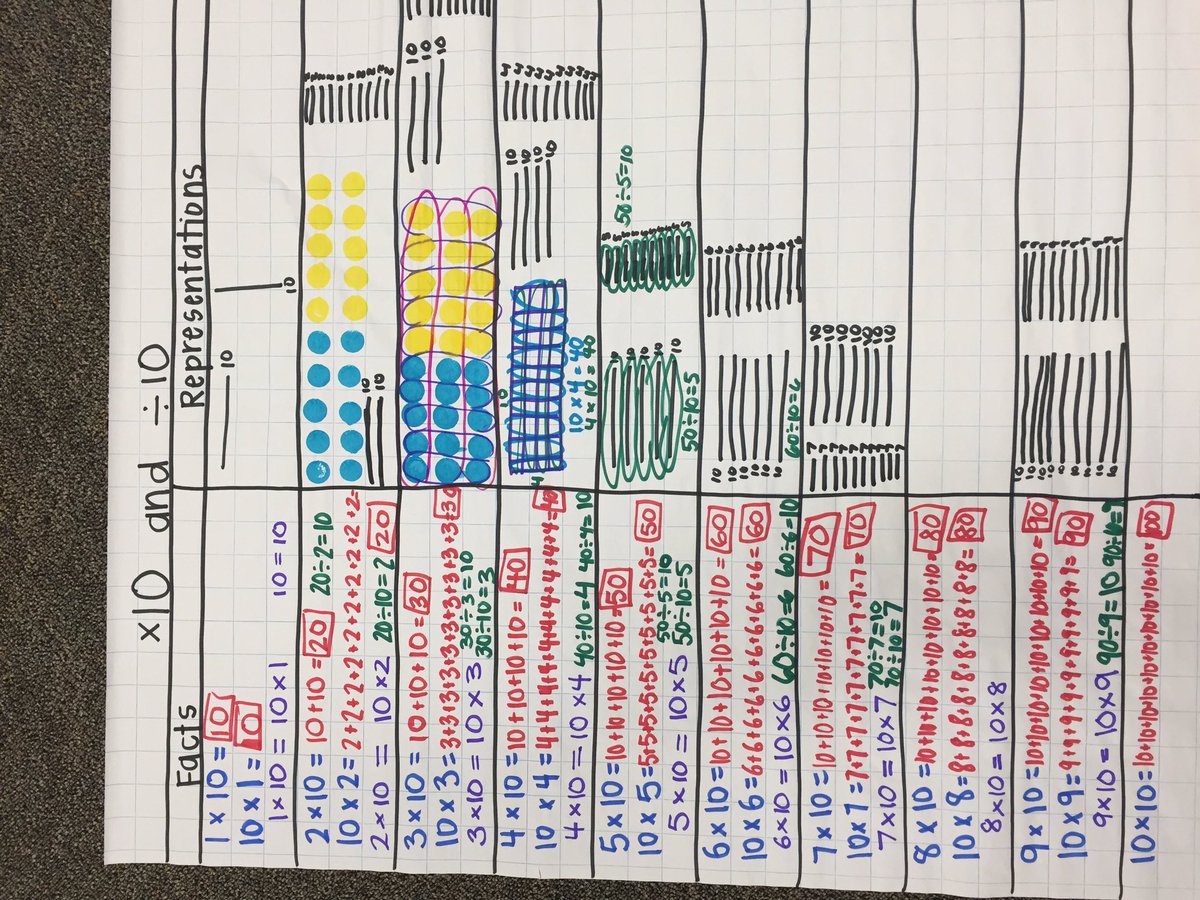 x10 and ÷10
Facts
Representations
1 x 10 = 10
10 x 1 = 10
1 x 10 = 10 x 1
10 = 10
10
10
2 x 10 = 10+10 = 20
20÷2=10
10 x 2 = 2+2+2+2+2+2+2+2+2+2=
20
2 x 10 = 10 x 2
20÷10=2
10
10
3 x 10 = 10+10+10=30
10 x 3=3+3+3+3+3+3+3+3+3+3=30
30÷3=10
3 x 10 = 10 x 3
30÷10=3
10
10
10
4 x 10 = 10+10+10+10 = 40
10 x 4 = 4+4+4+4+4+4+4+4+4+4=40
4 x 10 = 10 x 4
40÷10=4
40÷4=10
10
4
10 x 4 = 40
4 x 10 = 40
10
10
10
10
5 x 10 =10+10+10+10+10=50
10 x 5=5+5+5+5+5+5+5+5+5+5=50
50÷5=10
5 x 10 = 10 x 5
50÷10=5
50÷10=5
50÷5=10
6 x 10 =10+10+10+10+10+10 = 60
10 x 6 =6+6+6+6+6+6+6+6+6+6=60
6 x 10 = 10 x 6
60÷10=6
60÷6=10
60÷10=6
7 x 10 = 10+10+10+10+10+10+10=70
10x7=7+7+7+7+7+7+7+7+7+7=70
70÷7=10
7 x 10 = 10 x 7
70÷10=7
8 x 10 =10+10+10+10+10+10+10+10=80
10 x 8= 8+8+8+8+8+8+8+8+8+8=80
8 x 10 = 10 x 8
9 x 10 =10+10+10+10+10+10+10+10+10=90
10 x 9 =9+9+9+9+9+9+9+9+9+9=90
9 x 10 = 10 x 9
90÷9=10
10 x 10 =10+10+10+10+10+10+10+10+10+10=100